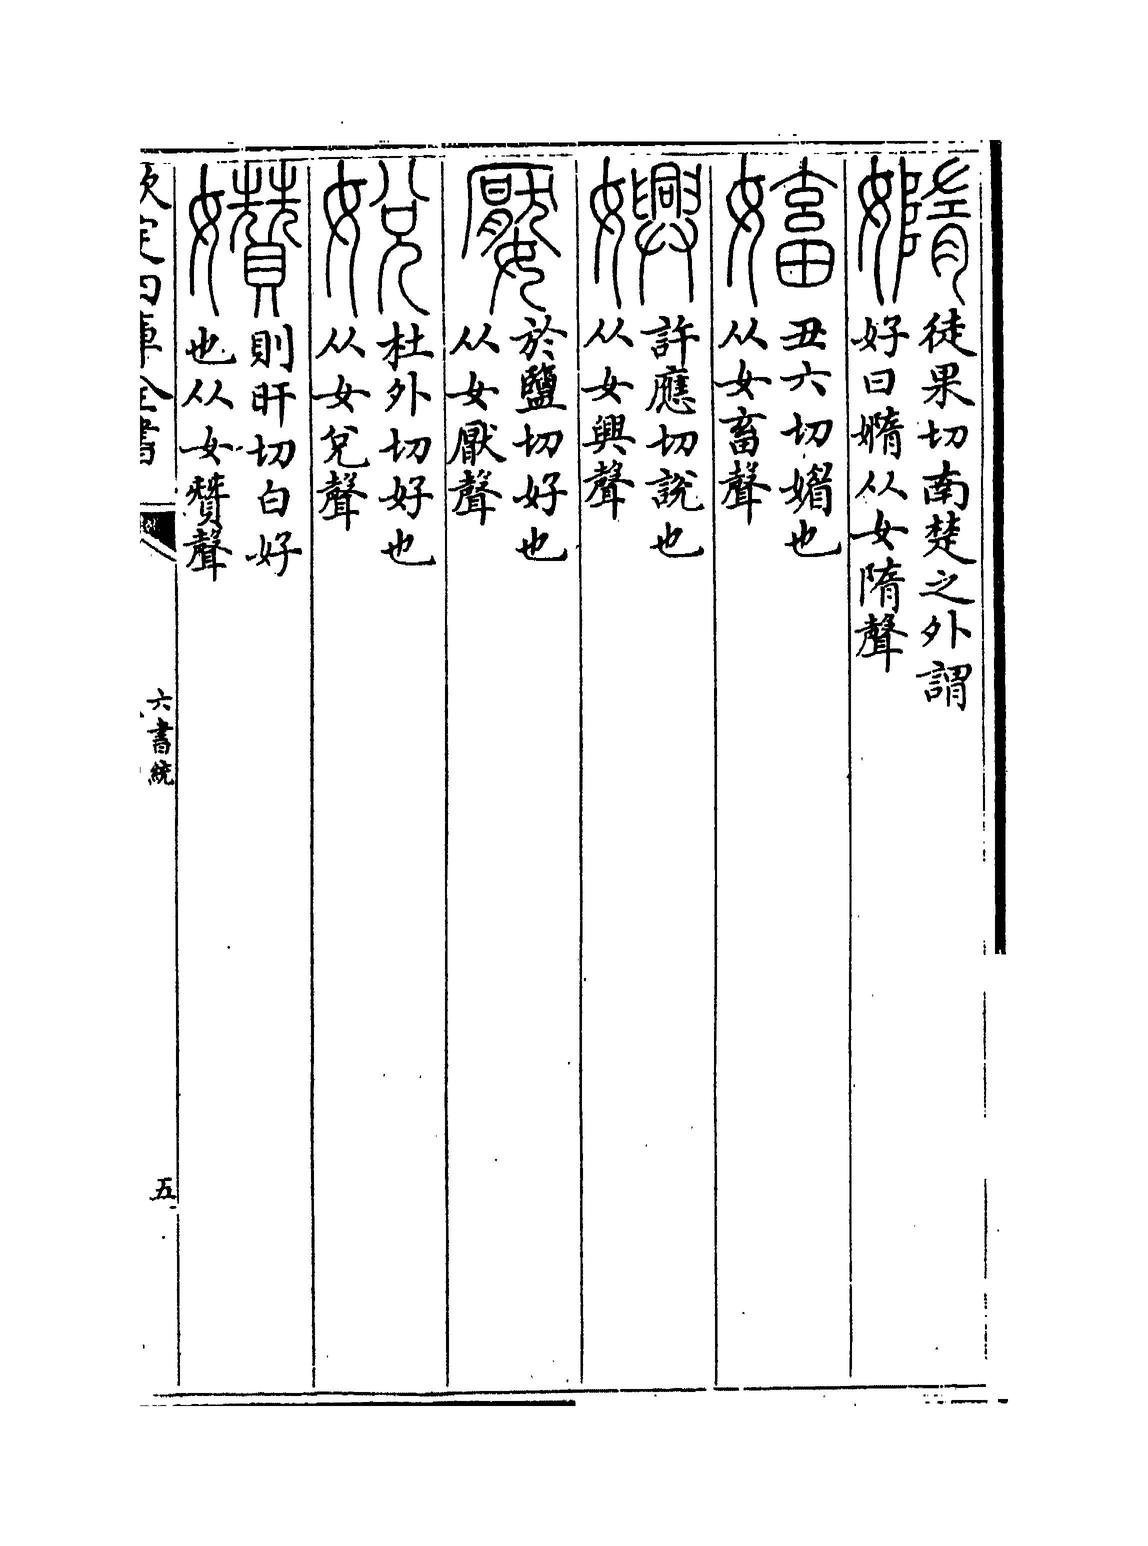 徒果切南楚之外謂
好曰嫷从女隋聲
丑六切媚也
从女畜聲
許應切說也
从女興聲
於鹽切好也
从女厭聲
杜外切好也
从女兌聲
則旰切白好
也从女贊聲
欽定四庫全書
六書統
五